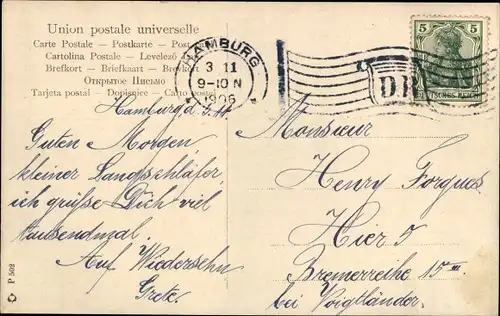 Union postale universelle
Carte Postale — Postkarte — Post
Cartolina Postale — Levelező
Brefkort — Briefkaart — Brevkort
Открытое Письмо
Tarjeta postal — Dopisnice — Carto postal
HAMBURG
3 11
9-10 N
1906
*
DR
5 5
DEUTSCHES REICH
Hamburg d. 3.11.
Guten Morgen,
kleiner Langschläfer,
ich grüße Dich viel
tausendmal.
Auf Wiedersehn
Grete.
Monsieur
Henry Forgues
Hier 5
Bremerreihe 15 III
bei Voigtländer.
P 502